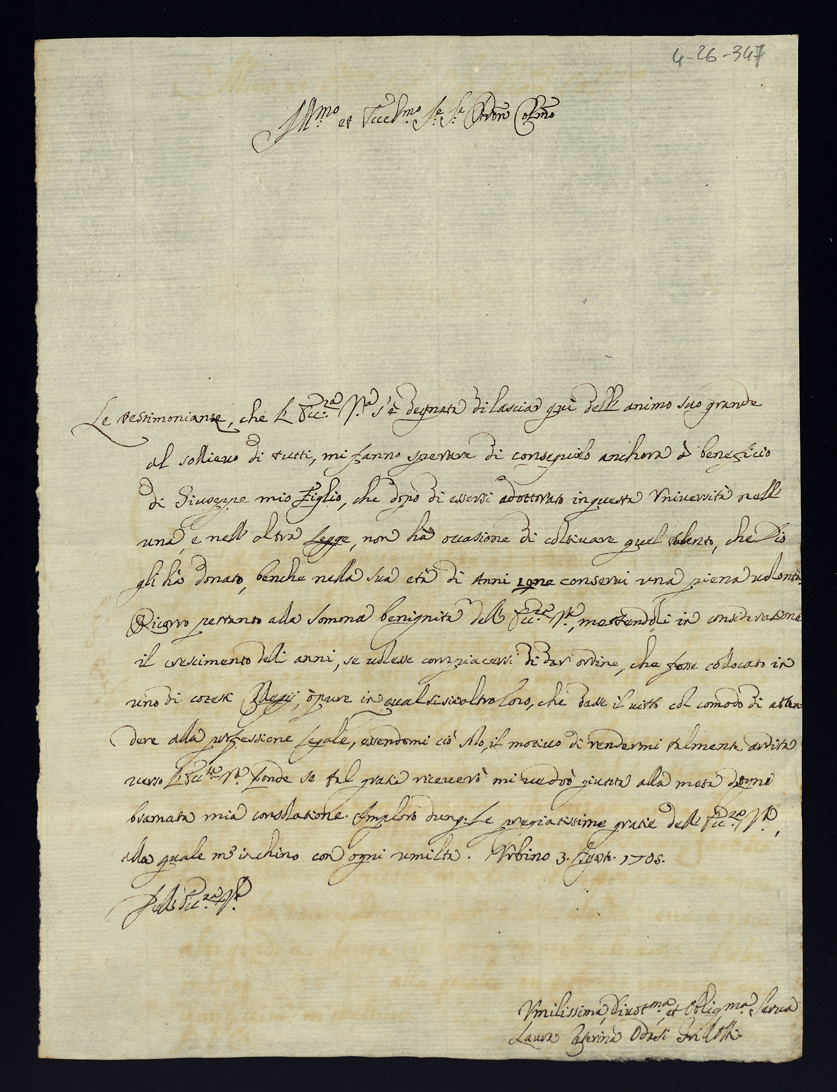 4-26-347
Ill.mo et Eccel.mo Sig.e Sig.e Pron Col.mo
Le testimonianze, che l'Ecc.za V.ra s'è degnata di lasciar quì dell'animo suo grande
al sollievo di tutti, mi fanno sperare di conseguirlo anchora à benefizio
di Giuseppe mio Figlio, che dopo di essersi adottorato in questa Università nell'
una, e nell'altra Legge, non hà occasione di coltivare quel talento, che Dio
gli hà donato, benche nella sua età di Anni conservi una piena volontà.
Ricorro pertanto alla somma benignità dell'Ecc.za V.ra, mettendoli in considerazione
il crescimento deli anni, se volesse compiacersi di dar'ordine, che fosse collocato in
uno di cotesti Collegij, ò pure in qualsisia altro loco, che dasse il vitto col comodo di atten-
dere alla professione legale, essendomi ciò solo, il motivo di rendermi talmente ardita
verso l'Ecc.za V.ra, onde se tal grazia riceverò mi vedrò giunta alla meta d'ogni
bramata mia consolazione. Imploro dunq. le pregiatissime grazie dell'Ecc.za V.ra,
alla quale m'inchino con ogni umiltà. Urbino 3. Agosto 1708.
Dell'Ecc.za V.ra
Umilissima, Divot.ma, et Obligm.a Serva
Laura Odasi